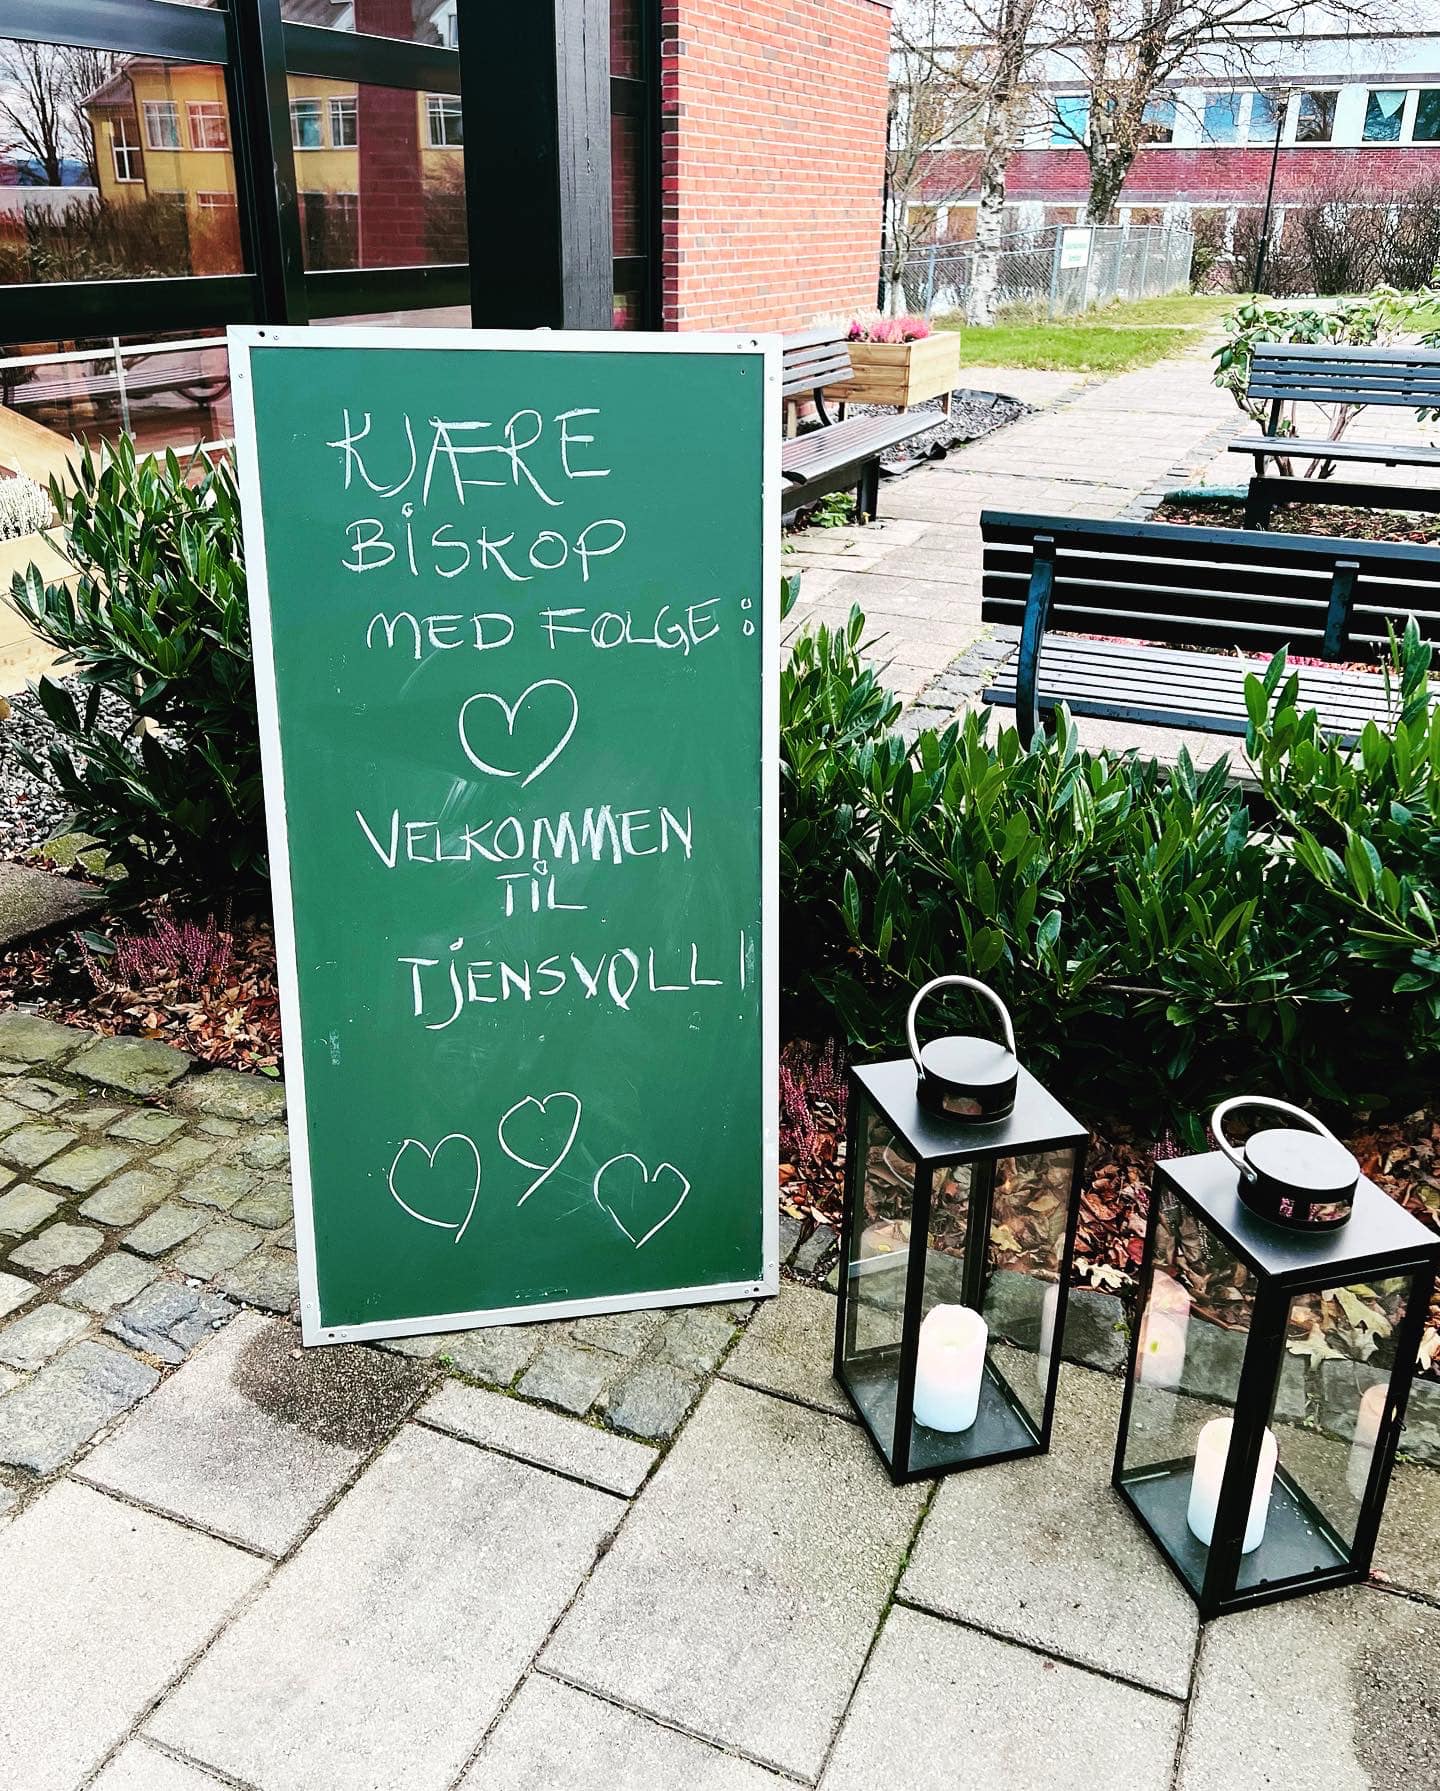 KJÆRE
BISKOP
MED FØLGE:
VELKOMMEN
TIL
TJENSVOLL!